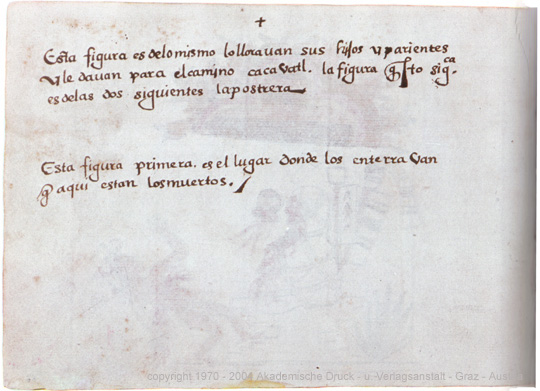 +
Esta figura es delo mismo lo lloravan sus hijos y parientes
y le davan para el camino cacavatl. la figura q̄ esto sigca.
es delas dos siguientes la postrera
Esta figura primera. es el lugar donde los enterravan
q̄ aqui estan los muertos.
copyright 1970 - 2004 Akademische Druck - u. Verlagsanstalt - Graz - Aus